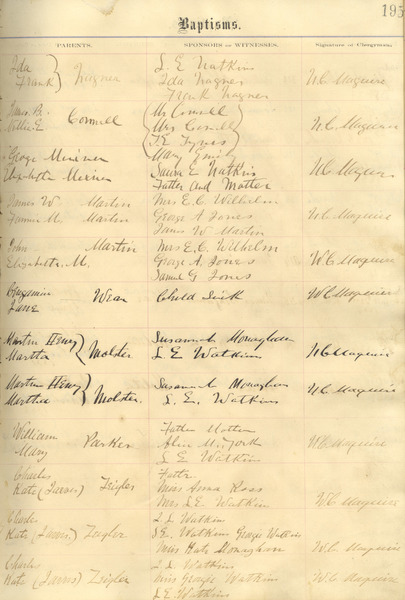 195
Baptisms.
PARENTS. SPONSORS or WITNESSES. Signature of Clergyman.
Ida Frank } Wagner
L. E. Watkins
Ida Wagner
Frank Wagner
W.C. Maguire
James B. Nellie E. Cornell
Mr Cornell
Mrs Cornell
Mary
W.C. Maguire
George Mariner
Elizabeth
Sallie E. Watkins
Father and Mother
W.C. Maguire
James W. Martin
Fannie M. Martin
Mrs E. C. Wilhelm
George A Jones
James W Martin
W.C. Maguire
John Martin
Elizabeth M.
Mrs E. C. Wilhelm
George A. Jones
Samuel G Jones
W.C. Maguire
Benjamin Wean
Jane
Child Sick
W.C. Maguire
Martin Henry
Martha } Molster
Susannah Monaghan
L E Watkins
W.C. Maguire
Martin Henry
Martha } Molster.
Susannah Monaghan
L. E. Watkins
W.C. Maguire
William
Mary Parker
Father Mother
Alice
L E Watkins
W.C. Maguire
Charles
Kate (Jarvis) Zeigler
Father
Miss Anna Ross
Mrs L E Watkins
W.C. Maguire
Charles
Kate (Jarvis) Zeigler
L L Watkins
L E. Watkins George Watkins
Miss Kate Monaghan
W.C. Maguire
Charles
Kate (Jarvis) Zeigler
L L. Watkins
Miss George Watkins
L E Watkins
W.C. Maguire